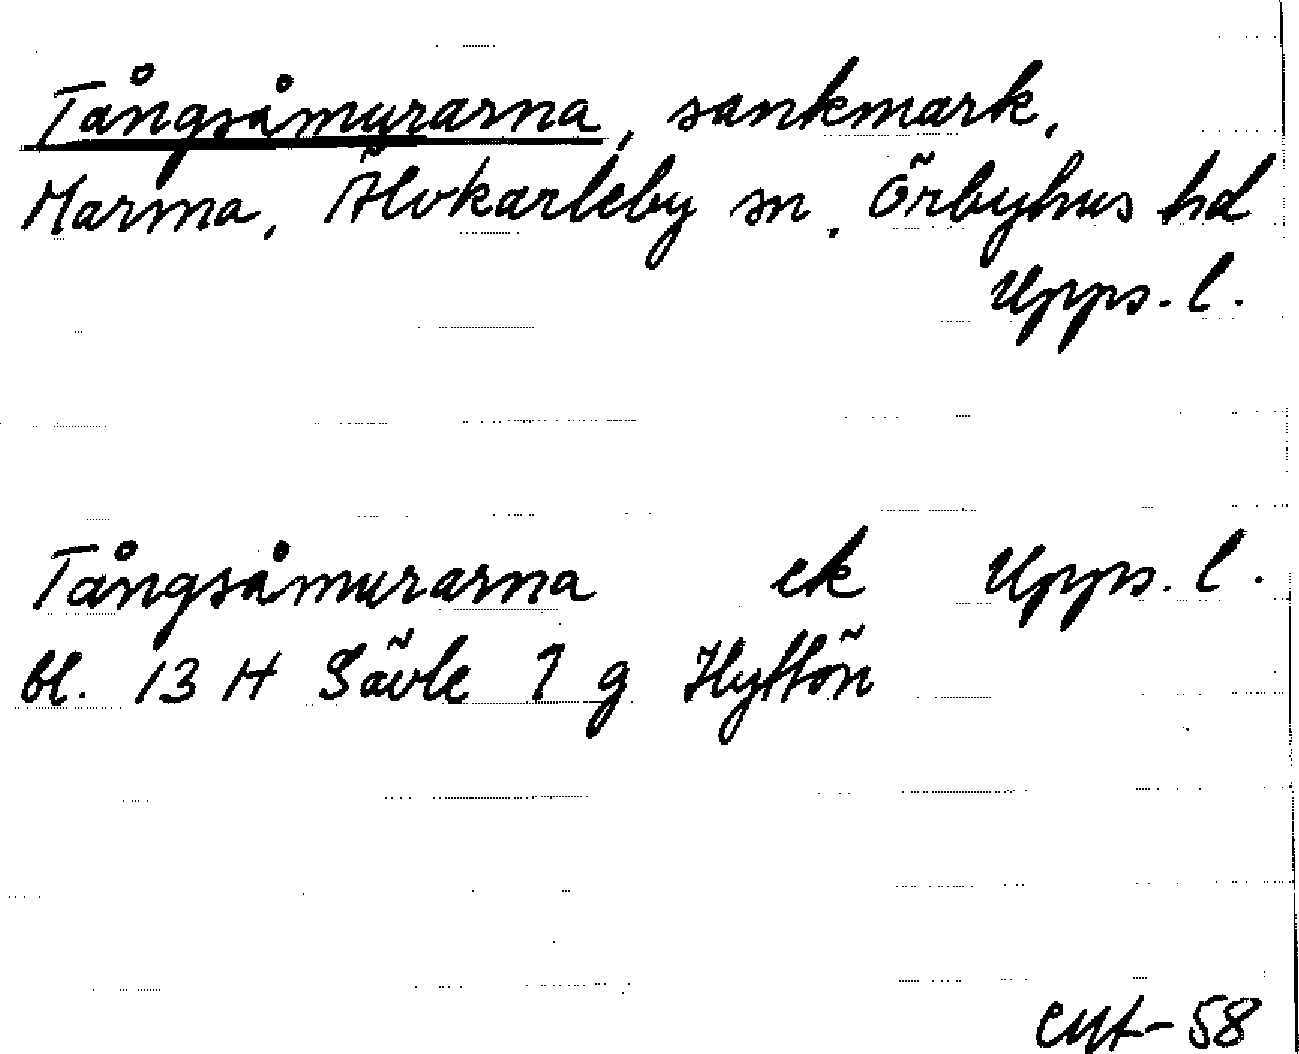 Tångsåmyrarna, sankmark,
Marma, Älvkarleby sn, Örbyhus hd
Upps. l.
Tångsåmyrarna ek Upps. l.
bl. 13 H Gävle 7 g Hyttön
-58